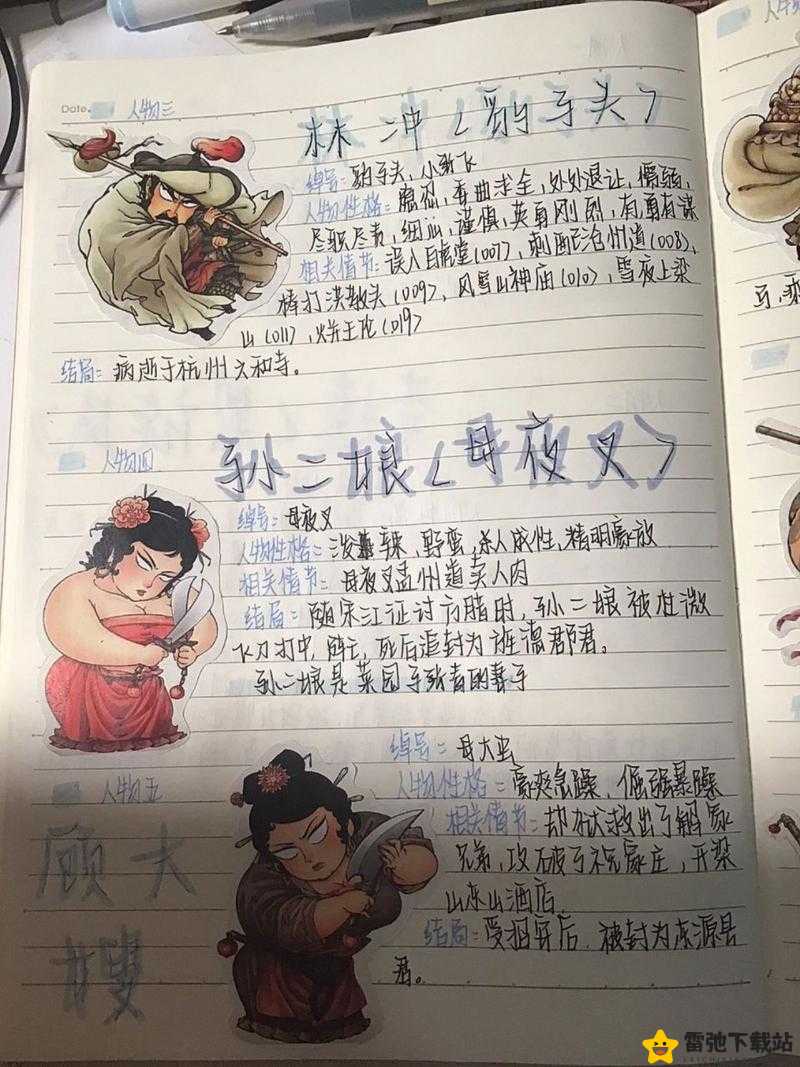 Date.
人物三
林冲(豹子头)
绰号:豹子头,小张飞
人物性格:隐忍,委曲求全,处处退让,懦弱,
尽职尽责,细心,谨慎,英勇刚烈,有勇有谋
相关情节:误入白虎堂(007),刺配沧州道(008),
棒打洪教头(009),风雪山神庙(010),雪夜上梁
山(011),火并王伦(019)
结局:病逝于杭州六和寺。
人物四
孙二娘(母夜叉)
绰号:母夜叉
人物性格:泼辣,野蛮,杀人成性,精明豪放
相关情节:母夜叉孟州道卖人肉
结局:随宋江征讨方腊时,孙二娘被杜微
飞刀打中,阵亡,死后追封为旌德郡君。
孙二娘是菜园子张青的妻子
人物五
顾大
嫂
绰号:母大虫
人物性格:豪爽急躁,倔强暴躁
相关情节:却狱救出了解家
兄弟,攻破了祝家庄,开梁
山东山酒店
结局:受招安后,被封为东源县
君。
人物
雷弛下载站